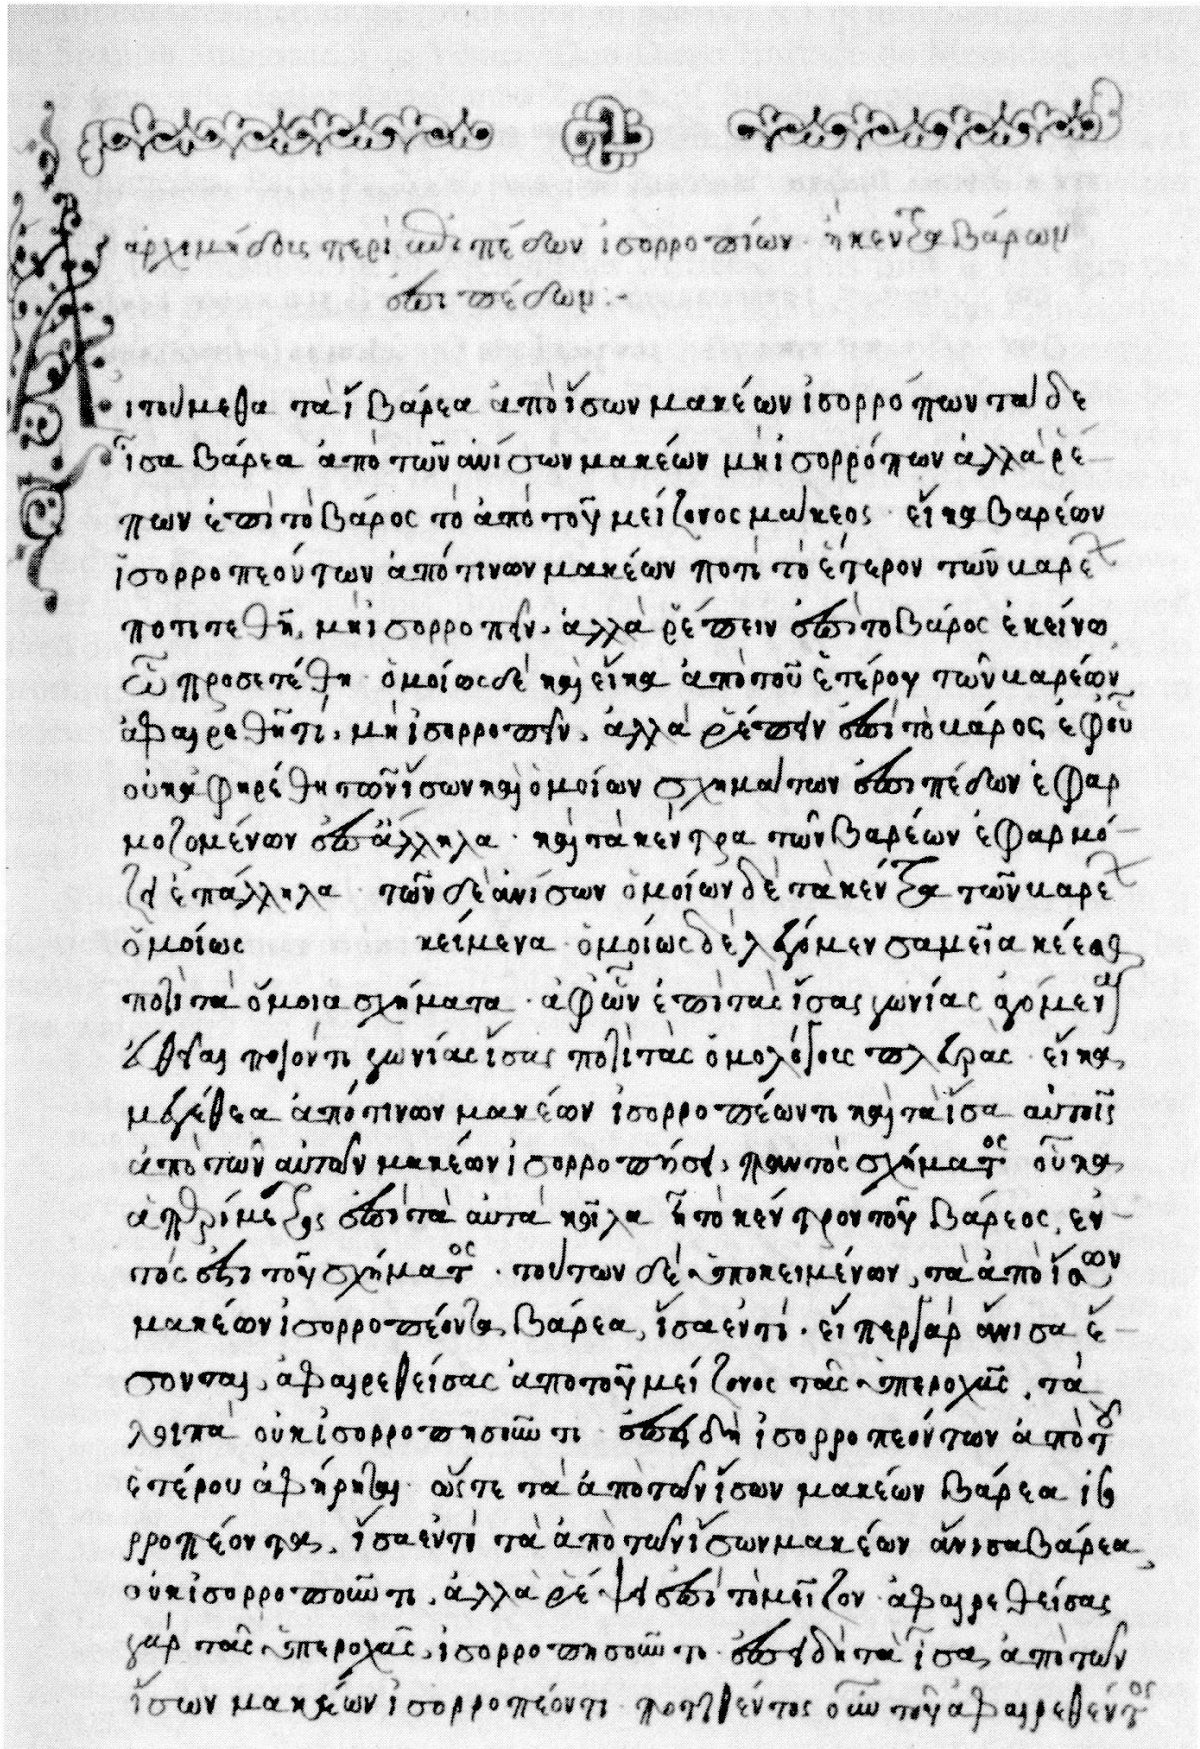 ἀρχιμήδους περὶ ἐπιπέδων ἰσορροπιῶν ἢ κέντρα βάρων
ἐπιπέδων :~
Αἰτούμεθα τὰ ἴ βάρεα ἀπὸ ἴσων μακέων ἰσορρόπων τὰ δε
ἴσα βάρεα ἀπὸ τῶν ἀνίσων μακέων μὴ ἰσορρόπων ἀλλὰ ῥέ
πων ἐπὶ τὸ βάρος τὸ ἀπὸ τοῦ μείζονος μάκεος · εἴ κα βαρέων
ἰσορροπεούντων ἀπό τινων μακέων ποτὶ τὸ ἕτερον τῶν καρε
ποτιτεθῆ, μὴ ἰσορροπεῖν, ἀλλὰ ῥέπειν ἐπὶ τὸ βάρος ἐκείνο
ᾧ προσετέθη · ὁμοίως δέ καὶ εἴ κα ἀπὸ τοῦ ἑτέρου τῶν καρέων
ἀφαιρεθῆ τί, μὴ ἰσορροπεῖν, ἀλλὰ ῥέπειν ἐπὶ τὸ κάρος, ἐφ' οὗ
οὐκ ἀφηρέθη τῶν ἴσων καὶ ὁμοίων σχημάτων ἐπιπέδων ἐφαρ
μοζομένων ἐπ' ἄλληλα · καὶ τὰ κέντρα τῶν βαρέων ἐφαρμό
ζει ἐπάλληλα · τῶν δὲ ἀνίσων ὁμοίων δὲ τὰ κέντρα τῶν καρε
ὁμοίως κείμενα · ὁμοίως δὲ λεγόμεν σαμεῖα κέεσθαι
ποτὶ τὰ ὅμοια σχήματα · ἀφ' ὧν ἐπὶ τὰς ἴσας γωνίας ἀγόμεναι
εὐθεῖαι ποιόντι γωνίας ἴσας ποτὶ τὰς ὁμολόγοις πλευράς · εἴ κα
μεγέθεα ἀπό τινων μακέων ἰσορροπέωντι καὶ τὰ ἴσα αὐτοῖς
ἀπὸ τῶν αὐτῶν μακέων ἰσορροπήσει, παντὸς σχήματος οὗ κα
ἁ περίμετρος ἐπὶ τὰ αὐτὰ κοῖλα ἦ τὸ κέντρον τοῦ βάρεος, ἐν
τός ἐστι τοῦ σχήματος · τούτων δέ ὑποκειμένων, τὰ ἀπὸ ἴσων
μακέων ἰσορροπέοντα βάρεα, ἴσα ἐντί · εἴπερ γάρ ἄνισα ἔ
σονται, ἀφαιρεθείσας ἀπὸ τοῦ μείζονος τᾶς ὑπεροχᾶς, τὰ
λοιπὰ οὐκ ἰσορροπησοῦντι · ἐπεὶ δὴ ἰσορροπεόντων ἀπὸ τοῦ
ἑτέρου ἀφήρηται · ὥστε τὰ ἀπὸ τῶν ἴσων μακέων βάρεα ἰσο
ρροπέοντα, ἴσα ἐντί τὰ ἀπὸ τῶν ἴσων μακέων ἄνισα βάρεα,
οὐκ ἰσορροποῦντι, ἀλλὰ ῥέψει ἐπὶ τὸ μεῖζον · ἀφαιρεθείσας
γάρ τᾶς ὑπεροχᾶς, ἰσορροπησοῦντι · ἐπειδὴ τὰ ἴσα, ἀπὸ τῶν
ἴσων μακέων ἰσορροπέοντι · ποτιτεθέντος οὖν τοῦ ἀφαιρεθέντος